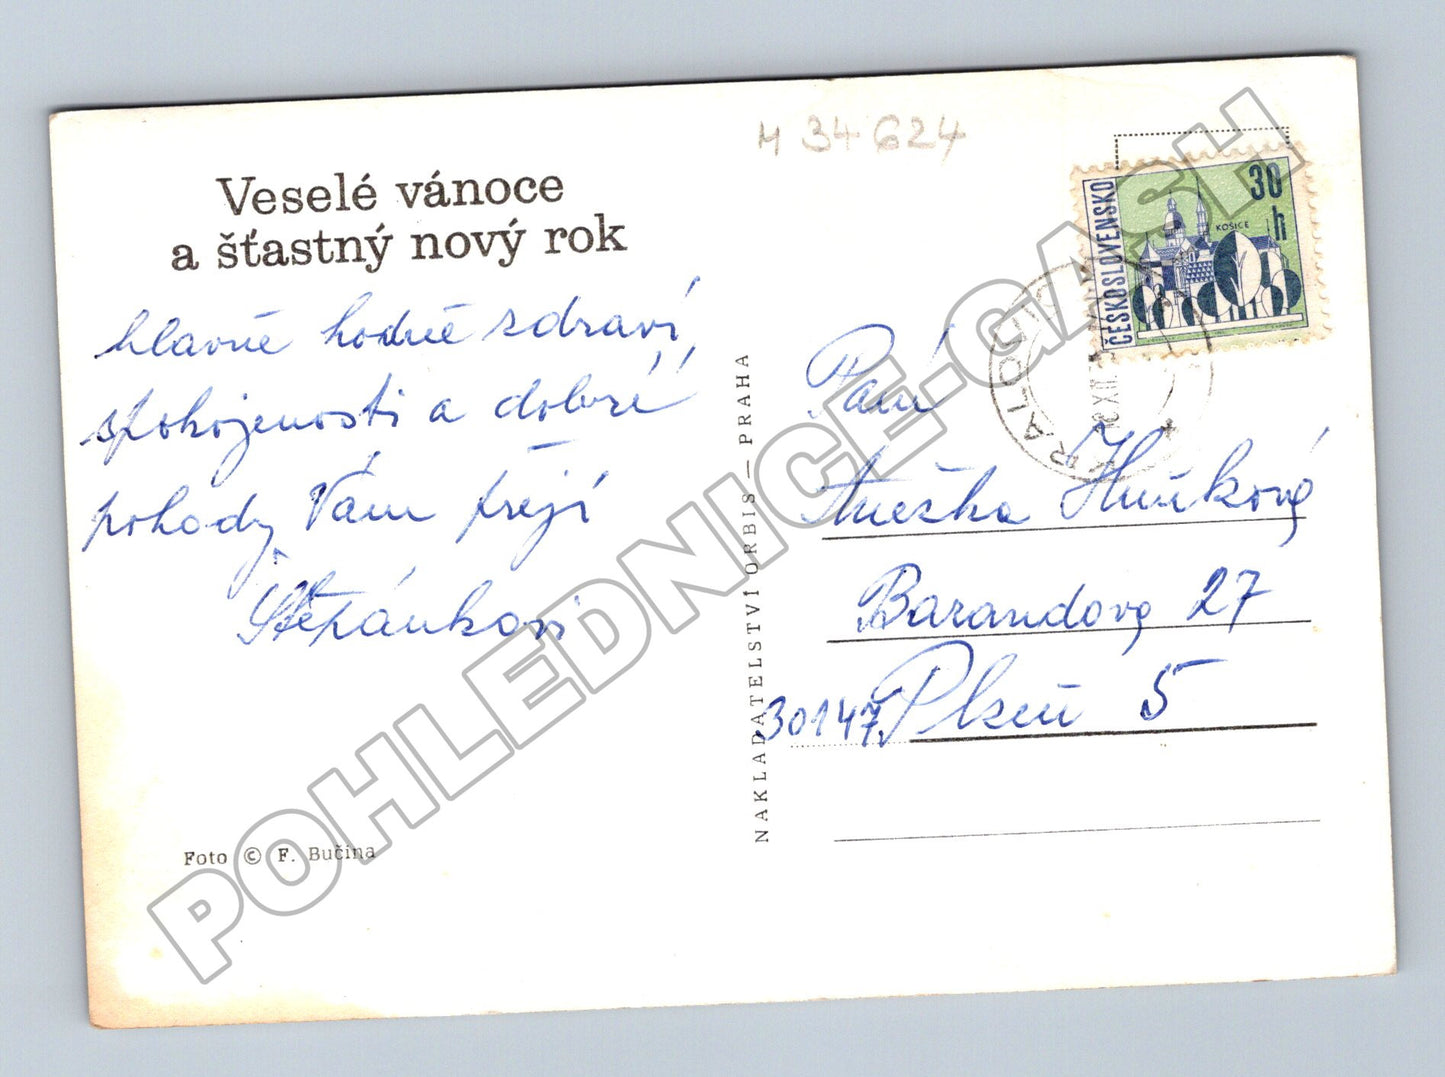 M 34 624
Veselé vánoce
a šťastný nový rok
hlavně hodně zdraví,
spokojenosti a dobré
pohody Vám přejí
Štěpánkovi
Foto © F. Bučina
NAKLADATELSTVÍ ORBIS — PRAHA
ČESKOSLOVENSKO
30
h
KOŠICE
KRALO
XII
Paní
Anežka
Barandova 27
30147 Plzeň 5
POHLEDNICE-GASH